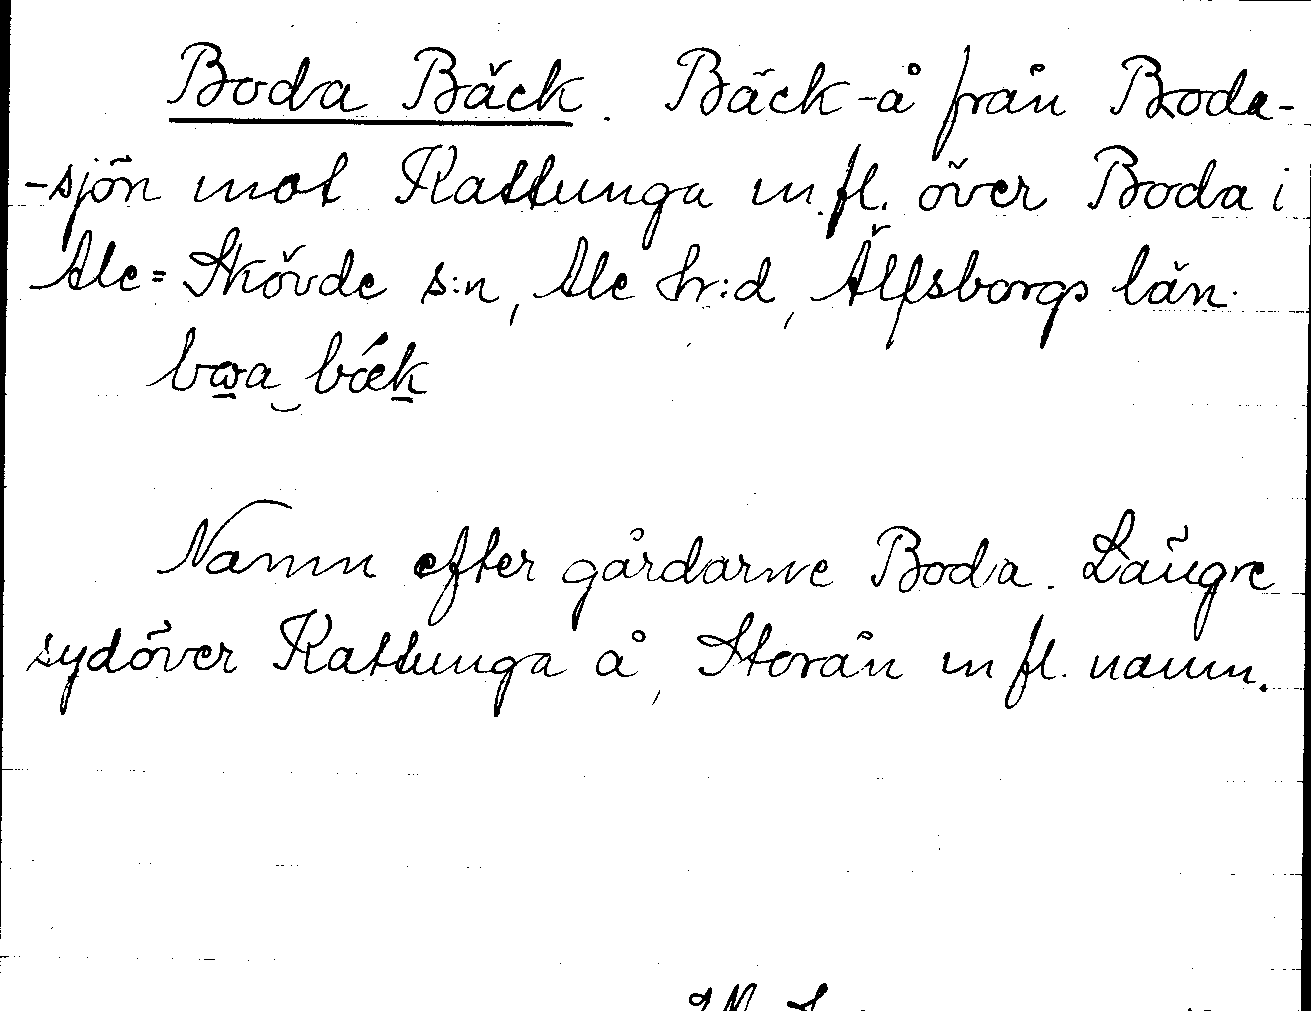 Boda Bäck. Bäck-å från Boda-
-sjön mot Kattunga m.fl. över Boda i
Ale=Skövde s:n, Ale hr:d, Älfsborgs län.
Namn efter gårdarne Boda. Längre
sydöver Kattunga å, Storån m fl. namn.